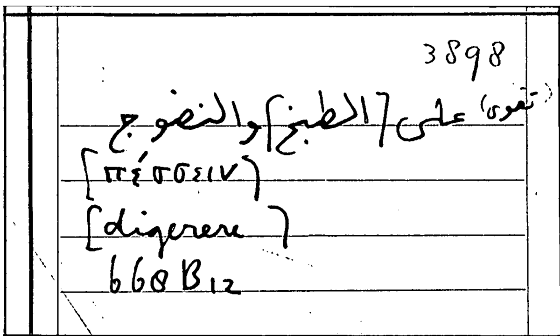 3898
(تقوى) على [الطبخ] والنضوج
[πέσσειν]
[digerere]
668 B 12